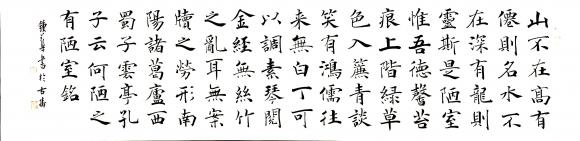 山不在高有
僊則名水不
在深有龍則
靈斯是陋室
惟吾德馨苔
痕上階綠草
色入簾青談
笑有鴻儒往
來無白丁可
以調素琴閱
金經無絲竹
之亂耳無案
牘之勞形南
陽諸葛廬西
蜀子雲亭孔
子云何陋之
有陋室銘
書於古